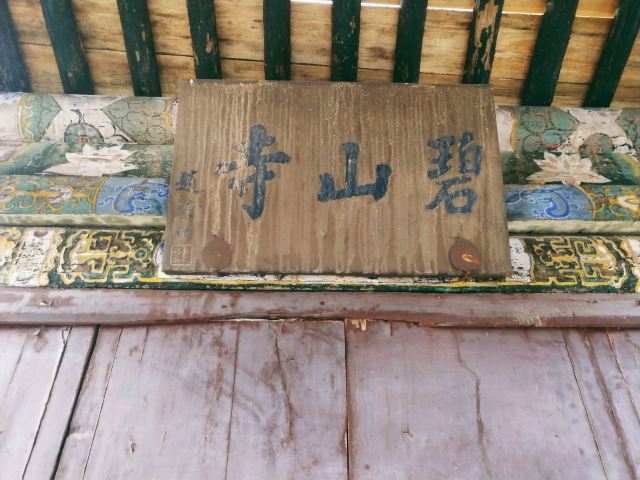 碧山寺